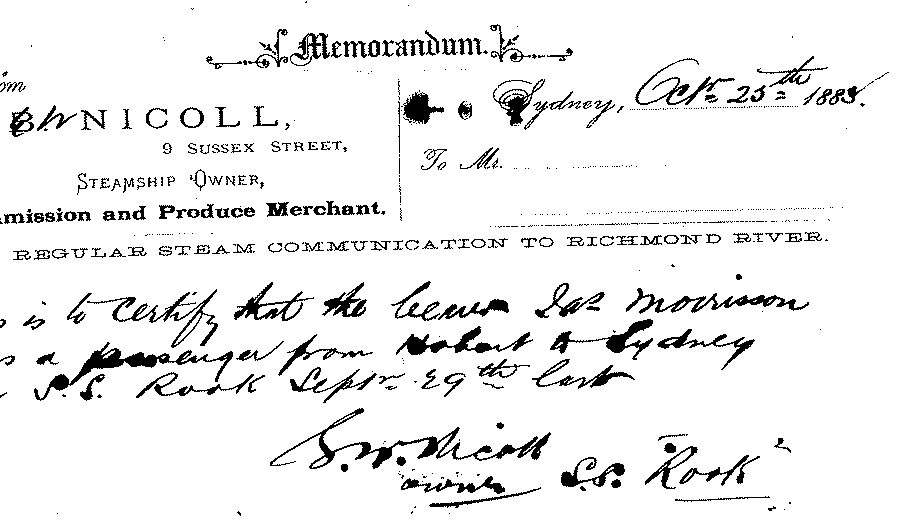 Memorandum.
om
NICOLL,
Sydney, Octr 25th 1883.
9 SUSSEX STREET,
To Mr.
STEAMSHIP OWNER,
mmission and Produce Merchant.
REGULAR STEAM COMMUNICATION TO RICHMOND RIVER.
s is to certify that the bearer Jas Morrisson
s a passenger from Hobart to Sydney
S.S. Rook Septr 29th last
G. W. Nicoll
owner S.S. "Rook"